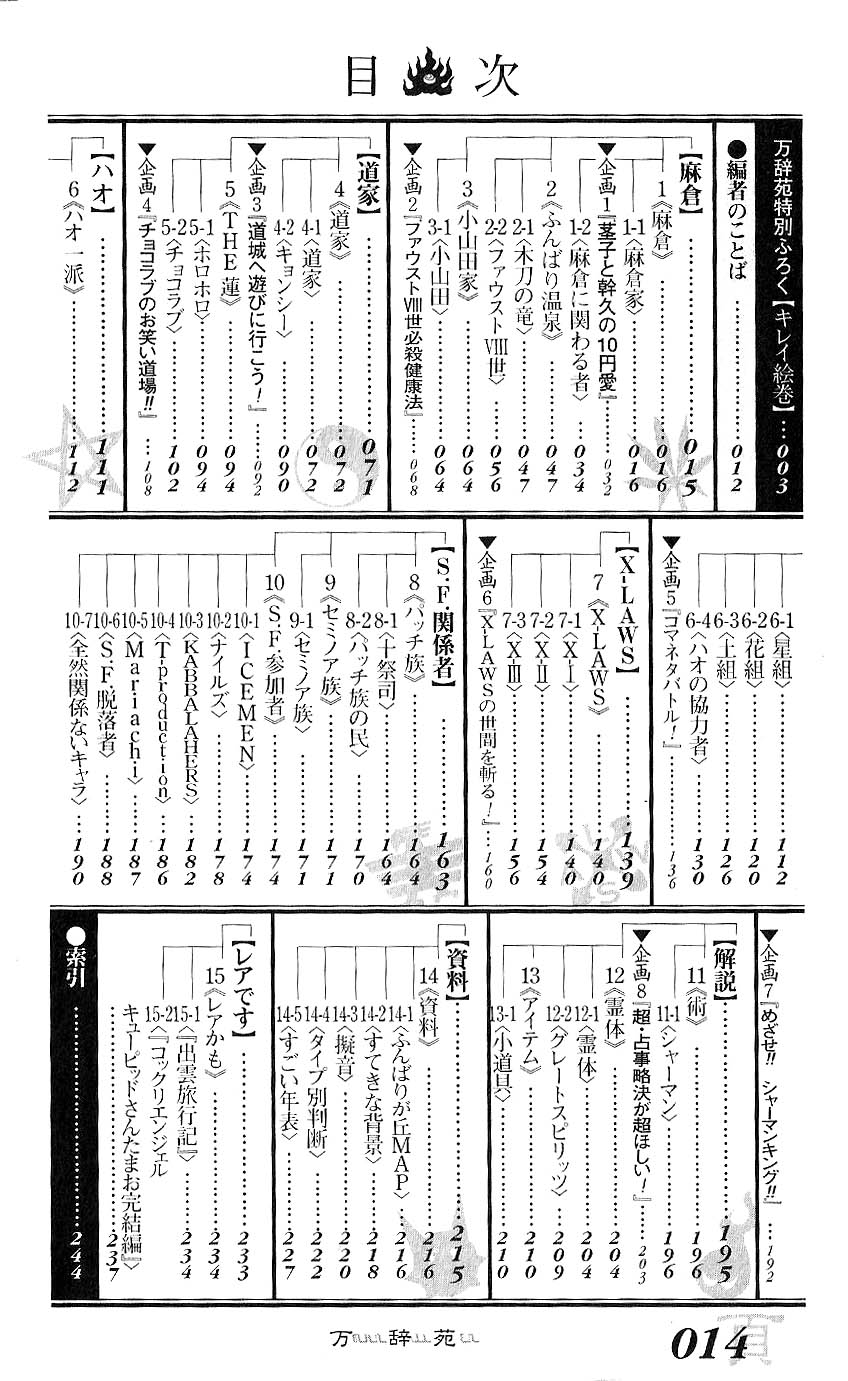 目次
万辞苑特別ふろく【キレイ絵巻】…003
●編者のことば…………012
【麻倉】…………015
1《麻倉》…………016
1-1〈麻倉家〉…………016
▼企画1『茎子と幹久の10円愛』…032
1-2〈麻倉に関わる者〉……034
2《ふんばり温泉》…………047
2-1〈木刀の竜〉…………047
2-2〈ファウストⅧ世〉……056
3《小山田家》…………064
3-1〈小山田〉…………064
▼企画2『ファウストⅧ世必殺健康法』…068
【道家】…………071
4《道家》…………072
4-1〈道家〉…………072
4-2〈キョンシー〉……090
▼企画3『道城へ遊びに行こう!』…092
5《THE蓮》…………094
5-1〈ホロホロ〉…………094
5-2〈チョコラブ〉……102
▼企画4『チョコラブのお笑い道場!!』…108
【ハオ】…………111
6《ハオ一派》…………112
6-1〈星組〉…………112
6-2〈花組〉…………120
6-3〈土組〉…………126
6-4〈ハオの協力者〉……130
▼企画5『コマネタバトル!』…136
【X-LAWS】…………139
7《X-LAWS》…………140
7-1〈X-Ⅰ〉…………140
7-2〈X-Ⅱ〉…………154
7-3〈X-Ⅲ〉…………156
▼企画6『X-LAWSの世間を斬る!』…160
【S.F.関係者】…………163
8《パッチ族》…………164
8-1〈十祭司〉…………164
8-2〈パッチ族の民〉……170
9《セミノア族》…………171
9-1〈セミノア族〉…………171
10《S.F.参加者》…………174
10-1〈ICEMEN〉……174
10-2〈ナイルズ〉…………178
10-3〈KABBALAHERS〉…182
10-4〈T-production〉…186
10-5〈Mariachi〉……187
10-6〈S.F.脱落者〉……188
10-7〈全然関係ないキャラ〉…190
▼企画7『めざせ!! シャーマンキング!!』…192
【解説】…………195
11《術》…………196
11-1〈シャーマン〉…………196
▼企画8『超・占事略決が超ほしい!』…203
12《霊体》…………204
12-1〈霊体〉…………204
12-2〈グレートスピリッツ〉……209
13《アイテム》…………210
13-1〈小道具〉…………210
【資料】…………215
14《資料》…………216
14-1〈ふんばりが丘MAP〉…216
14-2〈すてきな背景〉……218
14-3〈擬音〉…………220
14-4〈タイプ別判断〉……222
14-5〈すごい年表〉…………227
【レアです】…………233
15《レアかも》…………234
15-1〈『出雲旅行記』〉……234
15-2〈『コックリエンジェル
キューピッドさんたまお完結編』〉…237
●索引…………244
万辞苑
014
頁